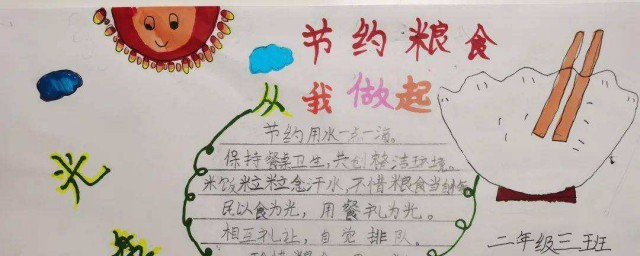 节约粮食
从我做起
节约用水一点一滴。
保持餐桌卫生,共创整洁环境。
米饭粒粒念汗水,不惜粮食当自
民以食为光,用餐礼为光。
相互礼让,自觉排队。
光
二年级三班